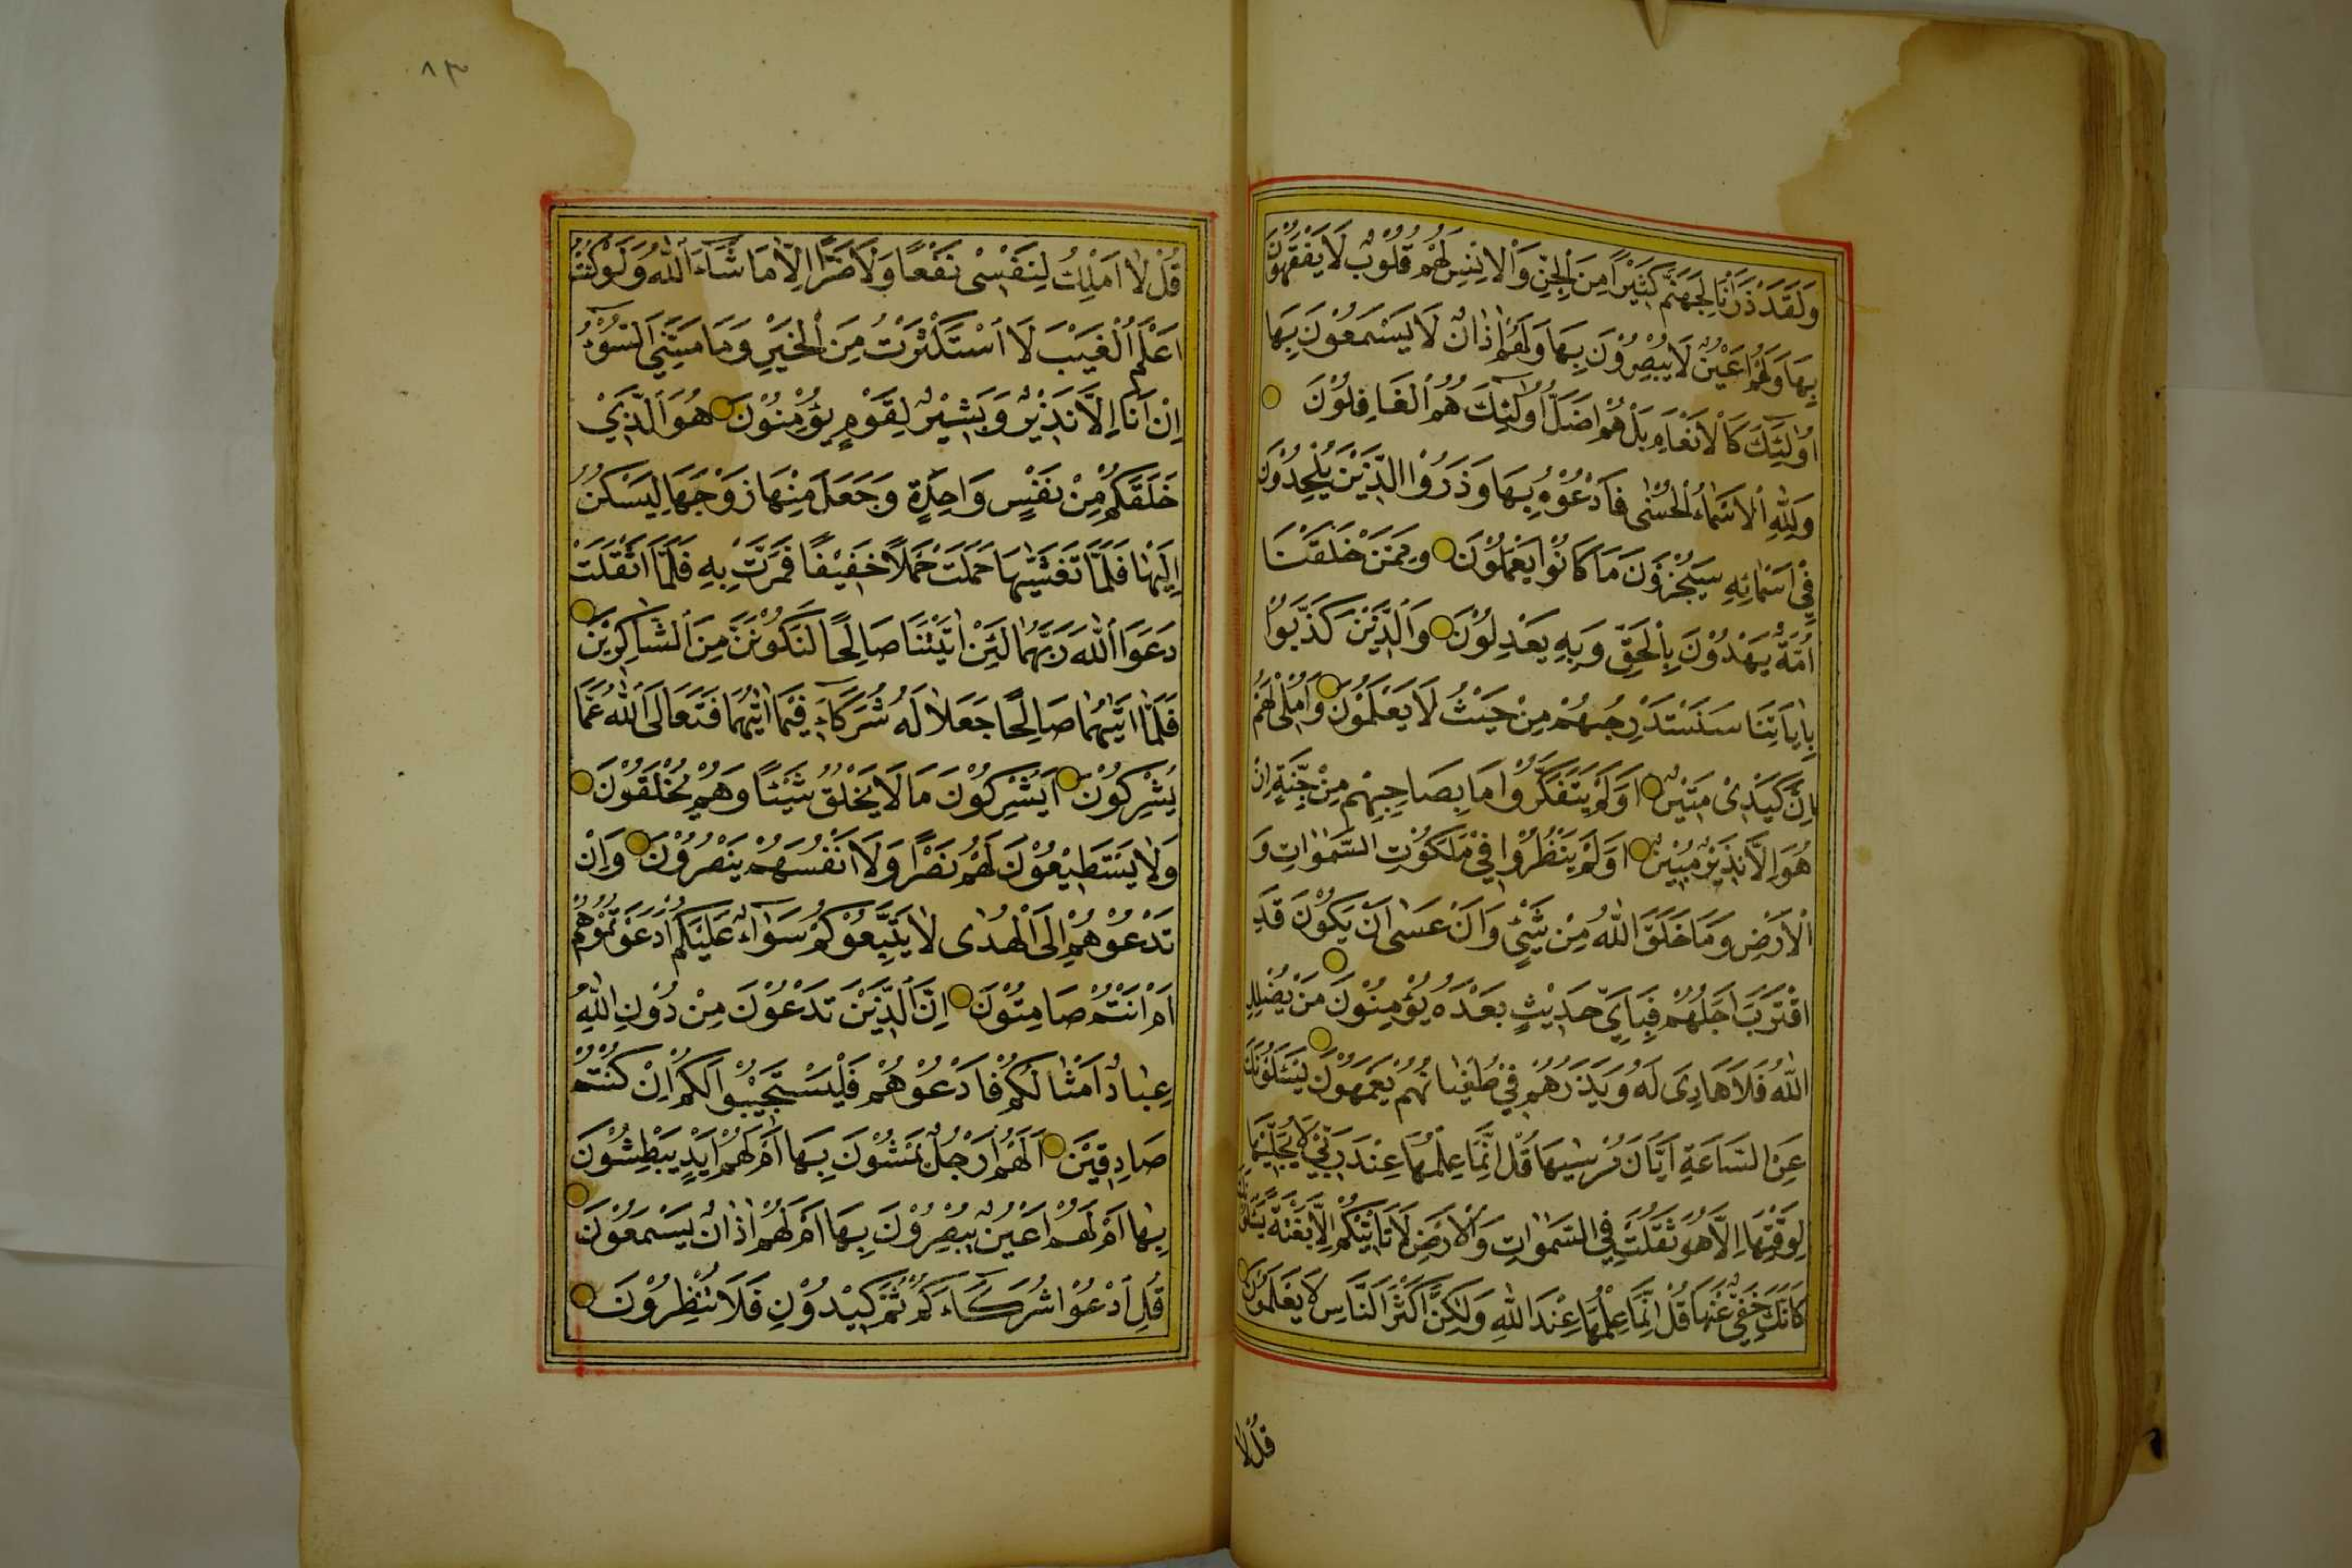 وَلَقَدْ ذَرَاْنَا لِجَهَنَّمَ كَثِيْرًا مِنَ الْجِنِّ وَالْاِنْسِ لَهُمْ قُلُوْبٌ لَا يَفْقَهُوْنَ
بِهَا وَلَهُمْ اَعْيُنٌ لَا يُبْصِرُوْنَ بِهَا وَلَهُمْ اٰذَانٌ لَا يَسْمَعُوْنَ بِهَا
اُولٰٓئِكَ كَالْاَنْعَامِ بَلْ هُمْ اَضَلُّ اُولٰٓئِكَ هُمُ الْغَافِلُوْنَ
وَلِلّٰهِ الْاَسْمَاءُ الْحُسْنٰى فَادْعُوْهُ بِهَا وَذَرُوْا الَّذِيْنَ يُلْحِدُوْنَ
فِيْ اَسْمَائِهِ سَيُجْزَوْنَ مَا كَانُوْا يَعْمَلُوْنَ وَمِمَّنْ خَلَقْنَا
اُمَّةٌ يَهْدُوْنَ بِالْحَقِّ وَبِهِ يَعْدِلُوْنَ وَالَّذِيْنَ كَذَّبُوْا
بِاٰيَاتِنَا سَنَسْتَدْرِجُهُمْ مِنْ حَيْثُ لَا يَعْلَمُوْنَ وَاُمْلِى لَهُمْ
اِنَّ كَيْدِىْ مَتِيْنٌ اَوَلَمْ يَتَفَكَّرُوْا مَا بِصَاحِبِهِمْ مِنْ جِنَّةٍ اِنْ
هُوَ اِلَّا نَذِيْرٌ مُبِيْنٌ اَوَلَمْ يَنْظُرُوْا فِيْ مَلَكُوْتِ السَّمٰوَاتِ وَ
الْاَرْضِ وَمَا خَلَقَ اللّٰهُ مِنْ شَيْئٍ وَاَنْ عَسٰى اَنْ يَكُوْنَ قَدِ
اقْتَرَبَ اَجَلُهُمْ فَبِاَيِّ حَدِيْثٍ بَعْدَهُ يُؤْمِنُوْنَ مَنْ يُضْلِلِ
اللّٰهُ فَلَا هَادِىَ لَهُ وَيَذَرُهُمْ فِيْ طُغْيَانِهِمْ يَعْمَهُوْنَ يَسْئَلُوْنَكَ
عَنِ السَّاعَةِ اَيَّانَ مُرْسٰيهَا قُلْ اِنَّمَا عِلْمُهَا عِنْدَ رَبِّيْ لَا يُجَلِّيْهَا
لِوَقْتِهَا اِلَّا هُوَ ثَقُلَتْ فِي السَّمٰوَاتِ وَالْاَرْضِ لَا تَاْتِيْكُمْ اِلَّا بَغْتَةً يَسْئَلُوْنَكَ
كَاَنَّكَ حَفِيٌّ عَنْهَا قُلْ اِنَّمَا عِلْمُهَا عِنْدَ اللّٰهِ وَلٰكِنَّ اَكْثَرَ النَّاسِ لَا يَعْلَمُوْنَ
قُلْ لَا
٨٣
قُلْ لَا اَمْلِكُ لِنَفْسِىْ نَفْعًا وَلَا ضَرًّا اِلَّا مَا شَاءَ اللّٰهُ وَلَوْ كُنْتُ
اَعْلَمُ الْغَيْبَ لَا اسْتَكْثَرْتُ مِنَ الْخَيْرِ وَمَا مَسَّنِيَ السُّوْءُ
اِنْ اَنَا اِلَّا نَذِيْرٌ وَبَشِيْرٌ لِقَوْمٍ يُؤْمِنُوْنَ هُوَ الَّذِيْ
خَلَقَكُمْ مِنْ نَفْسٍ وَاحِدَةٍ وَجَعَلَ مِنْهَا زَوْجَهَا لِيَسْكُنَ
اِلَيْهَا فَلَمَّا تَغَشّٰيهَا حَمَلَتْ حَمْلًا خَفِيْفًا فَمَرَّتْ بِهِ فَلَمَّا اَثْقَلَتْ
دَعَوَا اللّٰهَ رَبَّهُمَا لَئِنْ اٰتَيْتَنَا صَالِحًا لَنَكُوْنَنَّ مِنَ الشَّاكِرِيْنَ
فَلَمَّا اٰتٰيهُمَا صَالِحًا جَعَلَا لَهُ شُرَكَاءَ فِيْمَا اٰتٰيهُمَا فَتَعَالَى اللّٰهُ عَمَّا
يُشْرِكُوْنَ اَيُشْرِكُوْنَ مَا لَا يَخْلُقُ شَيْئًا وَهُمْ يُخْلَقُوْنَ
وَلَا يَسْتَطِيْعُوْنَ لَهُمْ نَصْرًا وَلَا اَنْفُسَهُمْ يَنْصُرُوْنَ وَاِنْ
تَدْعُوْهُمْ اِلَى الْهُدٰى لَا يَتَّبِعُوْكُمْ سَوَاءٌ عَلَيْكُمْ اَدَعَوْتُمُوْهُمْ
اَمْ اَنْتُمْ صَامِتُوْنَ اِنَّ الَّذِيْنَ تَدْعُوْنَ مِنْ دُوْنِ اللّٰهِ
عِبَادٌ اَمْثَالُكُمْ فَادْعُوْهُمْ فَلْيَسْتَجِيْبُوْا لَكُمْ اِنْ كُنْتُمْ
صَادِقِيْنَ اَلَهُمْ اَرْجُلٌ يَمْشُوْنَ بِهَا اَمْ لَهُمْ اَيْدٍ يَبْطِشُوْنَ
بِهَا اَمْ لَهُمْ اَعْيُنٌ يُبْصِرُوْنَ بِهَا اَمْ لَهُمْ اٰذَانٌ يَسْمَعُوْنَ
قُلِ ادْعُوْا شُرَكَاءَكُمْ ثُمَّ كِيْدُوْنِ فَلَا تُنْظِرُوْنَ